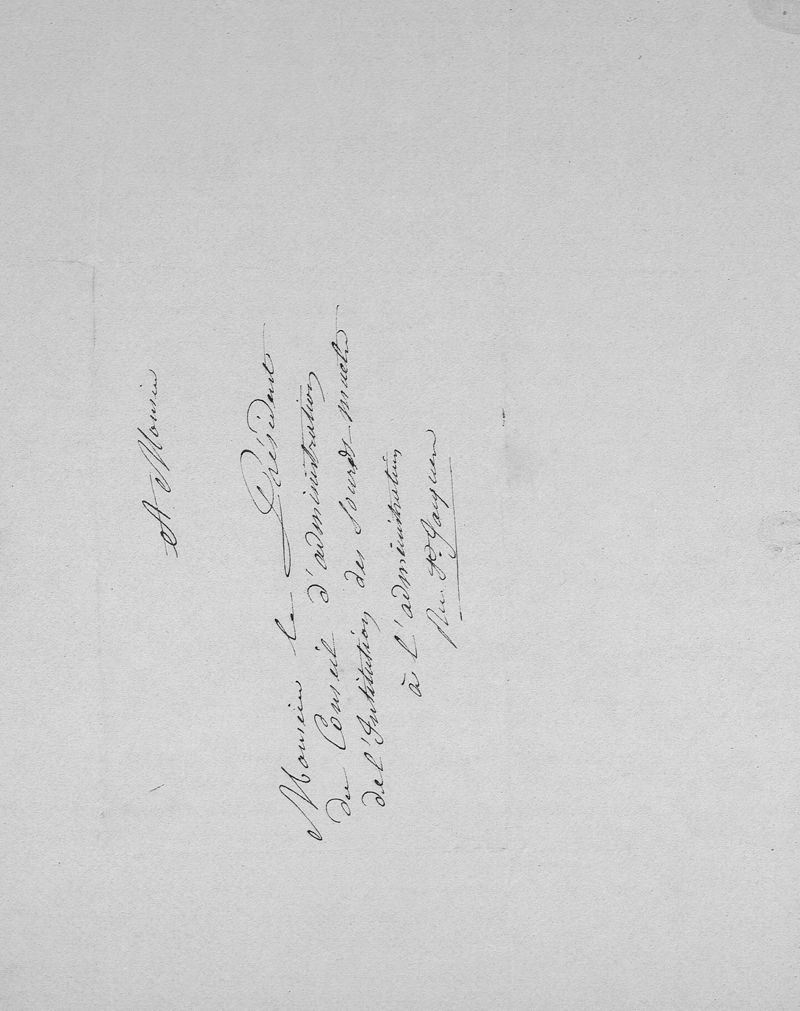 A Monsieur
Monsieur le Président
du Conseil d'administration
de l'Institution des Sourds-muets
à l'administration
Rue St Jacques